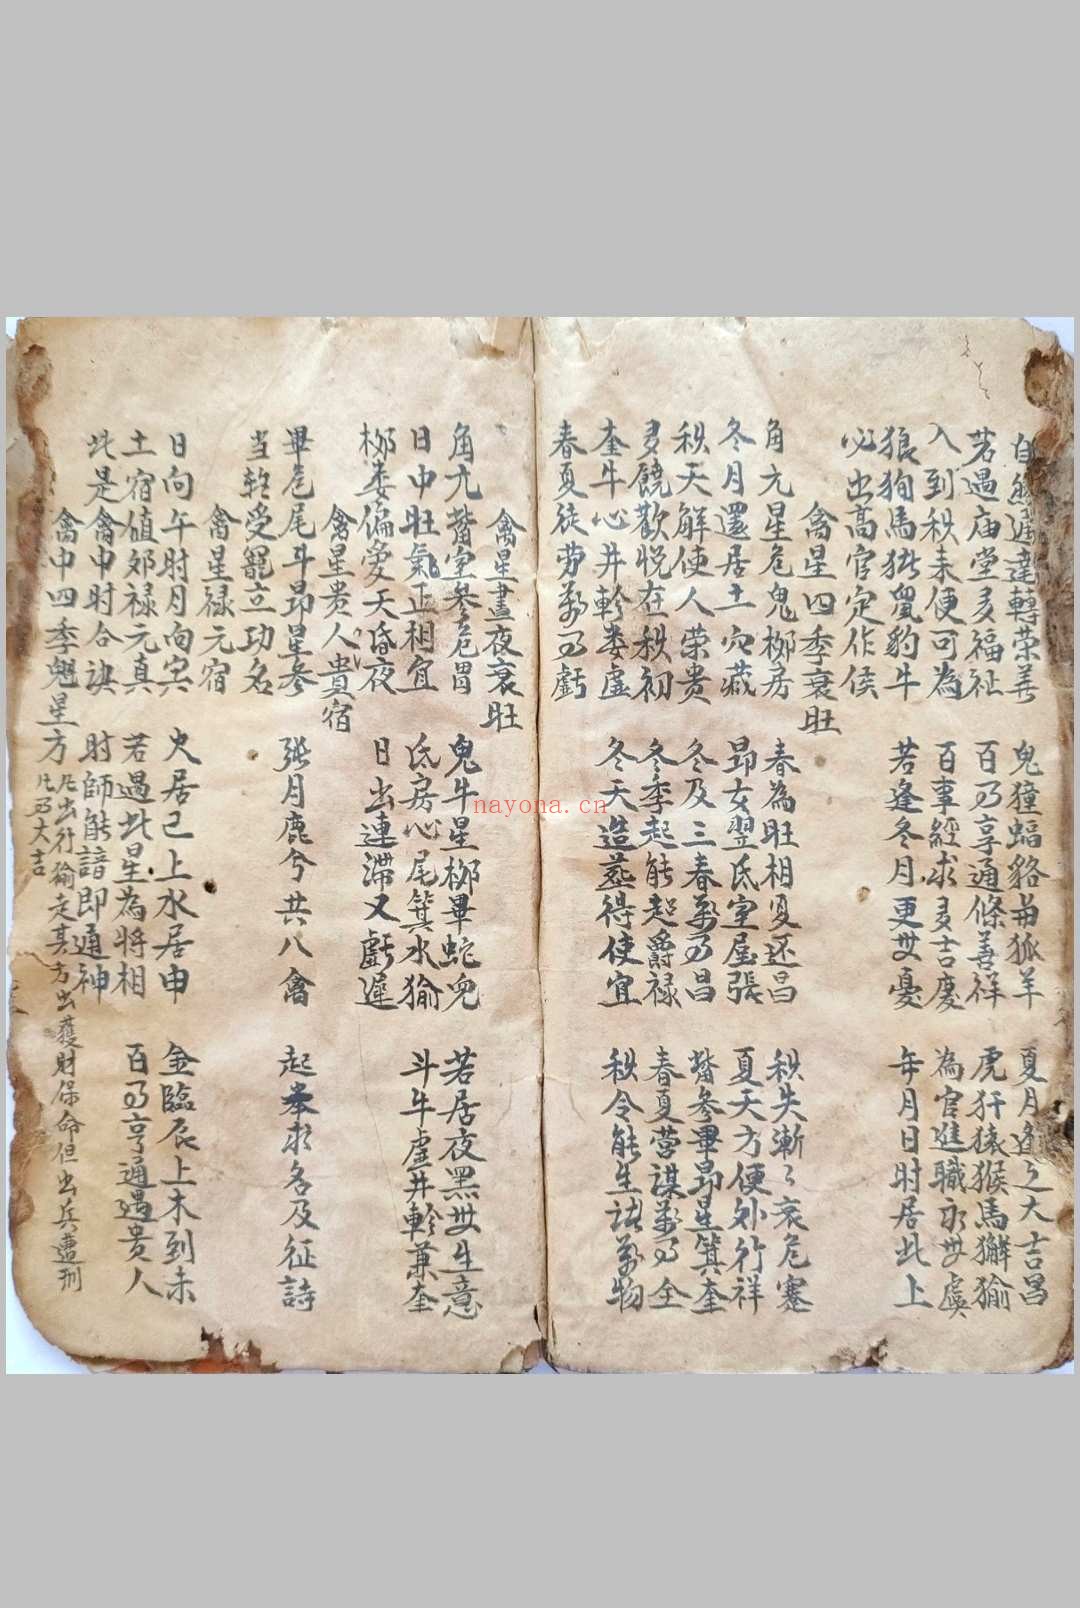 自然遲達轉荣善 鬼獐蝠貉兼狐羊 夏月逢之大吉昌
若遇庙堂多福祉 百乃享通條善祥 虎犴猿猴馬獬㺄
入到秋来便可為 百事經求多吉慶 為官進職永無虞
狼狗馬 豹牛 若逢冬月更無憂 年月日时居此上
必出高官定作侯
禽星四季衰旺
角亢星危鬼柳房 春為旺相夏还昌 秋失漸〻衰危蹇
冬月還居土穴藏 昴女翌氐室屋張 夏天方便外行祥
秋天解使人荣贵 冬及三春萬乃昌 觜參畢昴星箕奎
多饒歡悦在秋初 冬季起能起爵禄 春夏营謀萬乃全
奎牛心井軫娄虚 冬天造葬得使宜 秋令能生諸萬物
春夏徒劳萬乃虧
禽星晝夜衰旺
角亢觜室參危胃 鬼牛星柳畢蛇兜 若居夜黑無生意
日中旺氣正相宜 氐房心尾箕水㺄 斗牛虚井軫兼奎
柳娄偏愛天昏夜 日出連滞又虧遲
禽星贵人貴宿
畢危尾斗昴星參 张月鹿兮共八禽 起奉求名及征詩
当乾受寵立功名
禽星禄元宿
日向午时月向寅 火居己上水居申 金臨辰上木到未
土宿值郊禄元真 若遇此星為将相 百乃亨通遇贵人
此是禽中时合訣 时師能諳即通神
禽中四季魁星方 凡出行偷走其方出獲財保命但出兵遭刑
凡乃大吉
nayona.cn